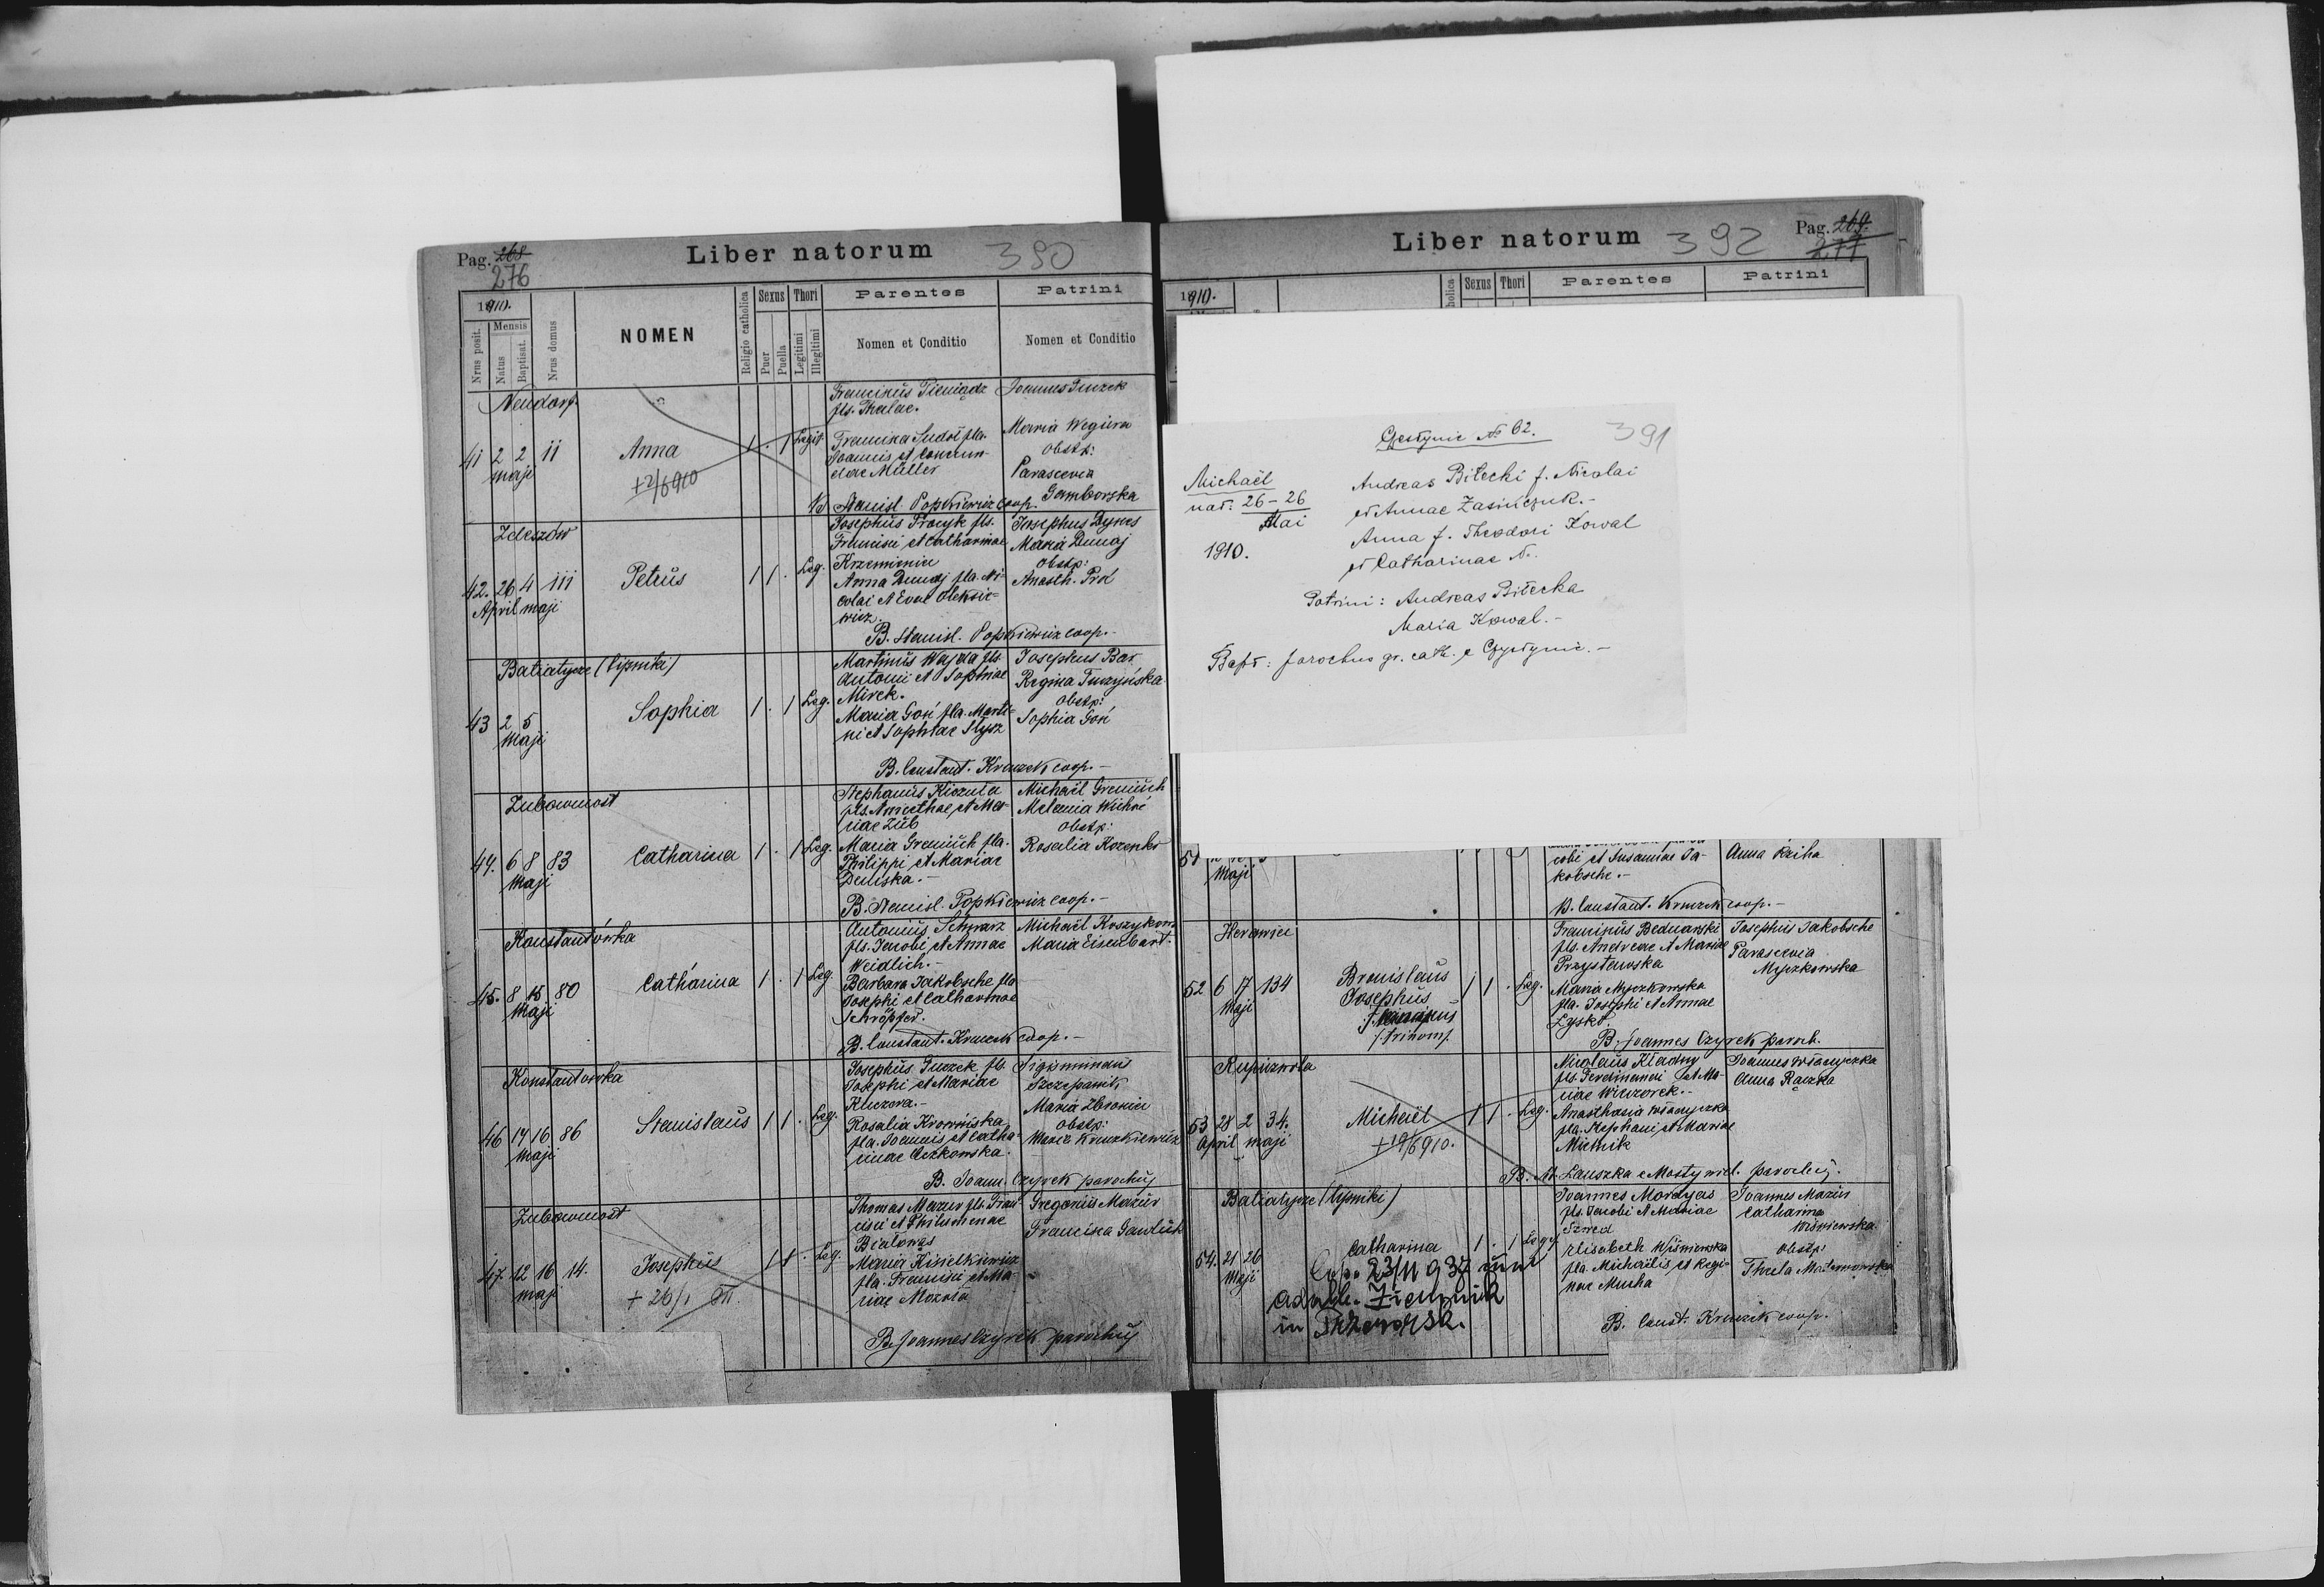 Pag. 268
276
Liber natorum
390
1910.
Nrus posit.
Mensis
Natus
Baptisat.
Nrus domus
NOMEN
Religio catholica
Sexus
Puer
Puella
Thori
Legitimi
Illegitimi
Parentes
Nomen et Conditio
Patrini
Nomen et Conditio
Neudorf
41 2 2 11
maji
Anna
+2/6 910
1 . 1 Legit.
Franciscus Pieniądz
fls. Theclae.
Francisca
Joannis et
Müller
Joannes Guzek
Maria Węgiera
Obstp:
Parascevia
Gamborska
B. Stanisl. Popkiewicz coop.
Zdeszów
42. 26 4 111
April maji
Petrus
1 1 . Leg.
Josephus Pracyk fls.
Francisci et Catharinae
Krzeminien
Anna Dunaj fla. Ni-
colai et Evae Oleksie-
wicz.
Josephus Dynes
Maria Dunaj
Obstp:
Anasth. Prot
B. Stanisl. Popkiewicz coop. -
Batiatycze (Lipniki)
43 2 5
Maji
Sophia
1 . 1 Leg.
Martinus Wajda fls.
Antonii et Sophiae
Mirek.
Maria Goń fla. Marti-
ni et Sophiae Slysz
Josephus Bar
Regina Tuczyńska
Obstp:
Sophia Goń
B. Constant. Kruczek coop. -
Zubowmost
44. 6 8 83
Maji
Catharina
1 . 1 Leg.
Stephanus Kiczula
fls. et Ma-
riae Zub
Maria Greniuch fla.
Philippi et Mariae
Demska. -
Michaël Greniuch
Melania
Obstp:
Rosalia Kozenko
B. Stanisl. Popkiewicz coop. -
Konstantówka
45. 8 15 80
Maji
Catharina
1 . 1 Leg.
Antonius Schwarz
fls. Jacobi et Annae
Weidlich. -
Barbara Jakobsche fla
Josephi et Catharinae
Schröpfer.
Michaël Koszykowa
Maria Eisenbart.
B. Constant. Kruczek coop. -
Konstantówka
46 14 16 86
Maji
Stanislaus
1 1 . Leg.
Josephus Guzek fls.
Josephi et Mariae
Kluzova. -
Rosalia
fla. Joannis et Catha-
rinae
Sigismundus
Szczepanik
Maria
Obstp:
B. Joann. Czyrek parochus
Zubowmost
47. 12 16 14.
maji
Josephus
+ 26/1
1 1 . Leg.
Thomas Mazur fls. Fran-
cisci et Philomenae
Bialowąs
Maria Kisielkiewicz
fla. Francisci et Ma-
riae
Gregorius Mazur
Francisca Gawluk
B. Joannes Czyrek parochus
Liber natorum
392
Pag. 269.
277
1910.
holica
Sexus
Thori
Parentes
Patrini
391
Czestynie № 62.
Michaël
nat. 26-26
Mai
1910.
Andreas Bilecki f. Nicolai
et Annae Zasińczuk. -
Anna f. Theodori Kowal
et Catharinae N.
Patrini: Andreas Bilecka
Maria Kowal. -
Bapt: parochus gr. cath. e -
51
Maji
cobi et Susannae Ja-
kobsche. -
Anna
B. Constant. Kruczek coop. -
52 6 17 134
Maji
Bronislaus
Josephus
/trinom/
1 1 . Leg.
Franciscus Bednarski
fls. Andreae et Mariae
Przystawska
Maria Myszkowska
fla. Josephi et Annae
Josephus Jakobsche
Parascevia
Myszkowska
B. Joannes Czyrek paroch.
53 28 2 34.
April maji
Michaël
+19/6 910.
1 1 . Leg.
Nicolaus Kladny
fls. Ferdinandi et Ma-
riae
Anasthasia
fla. Stephani et Mariae
Mielnik
Joannes
Anna Rączka
B. St. Lauszka e Mosty wiel. parochus.
Batiatycze (Lipniki)
54. 21 26
Maji
Catharina
1 . 1 Leg.
Joannes Mordyas
fls. Jacobi et Mariae
Szwed
Elisabeth Wiśniewska
fla. Michaëlis et Regi-
nae Mucha
Joannes Mazur
Catharina
Wiśniewska
Obstp:
Thecla
Cop. 23/11 937 cum
in Przeworsk.
B. Const. Kruczek coop.